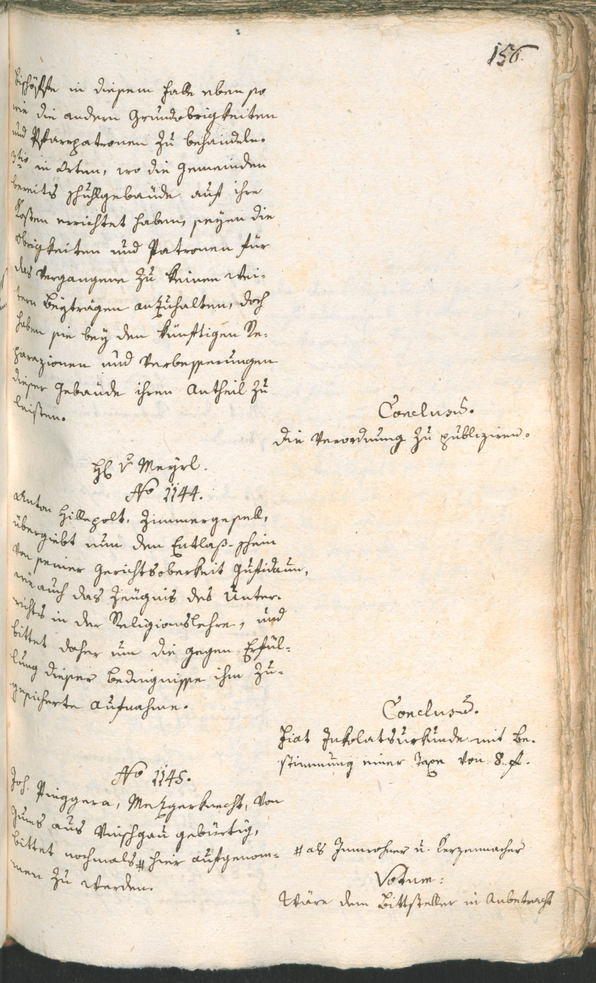 156.
Bischöffe in diesem Falle eben so
wie die andern Grundobrigkeiten
und Pfarrpatronen zu behandeln.
3tio in Orten, wo die Gemeinden
bereits Schullgebäude auf ihre
Kosten errichtet haben, seyen die
Obrigkeiten und Patronen für
das Vergangene zu keinen wei-
tern Beyträgen anzuhalten, doch
haben sie bey den künftigen Re-
parazionen und Verbesserungen
dieser Gebäude ihren Antheil zu
leisten.
Conclusū.
Die Verordnung zu publiziren.
H v Meyrl.
No 1144.
Anton Hillepolt, Zimmergesell,
übergiebt nun den Entlaß-Schein
von seiner Gerichtsoberkeit Gufidaun,
wie auch das Zeugnis des Unter-
richts in der Religionslehre, und
bittet daher um die gegen Erfül-
lung dieser Bedingnisse ihm zu-
gesicherte Aufnahme.
Conclusū.
Fiat Inkolatsurkunde mit Be-
stimmung einer Taxe von 8. f.
No 1145.
Joh. Pinggera, Metzgerknecht, von
aus Vinschgau gebürtig,
bittet nochmals # hier aufgenom-
men zu werden.
# als Innwohner u. Kerzenmacher
Votum:
Wäre dem Bittsteller in Anbetracht